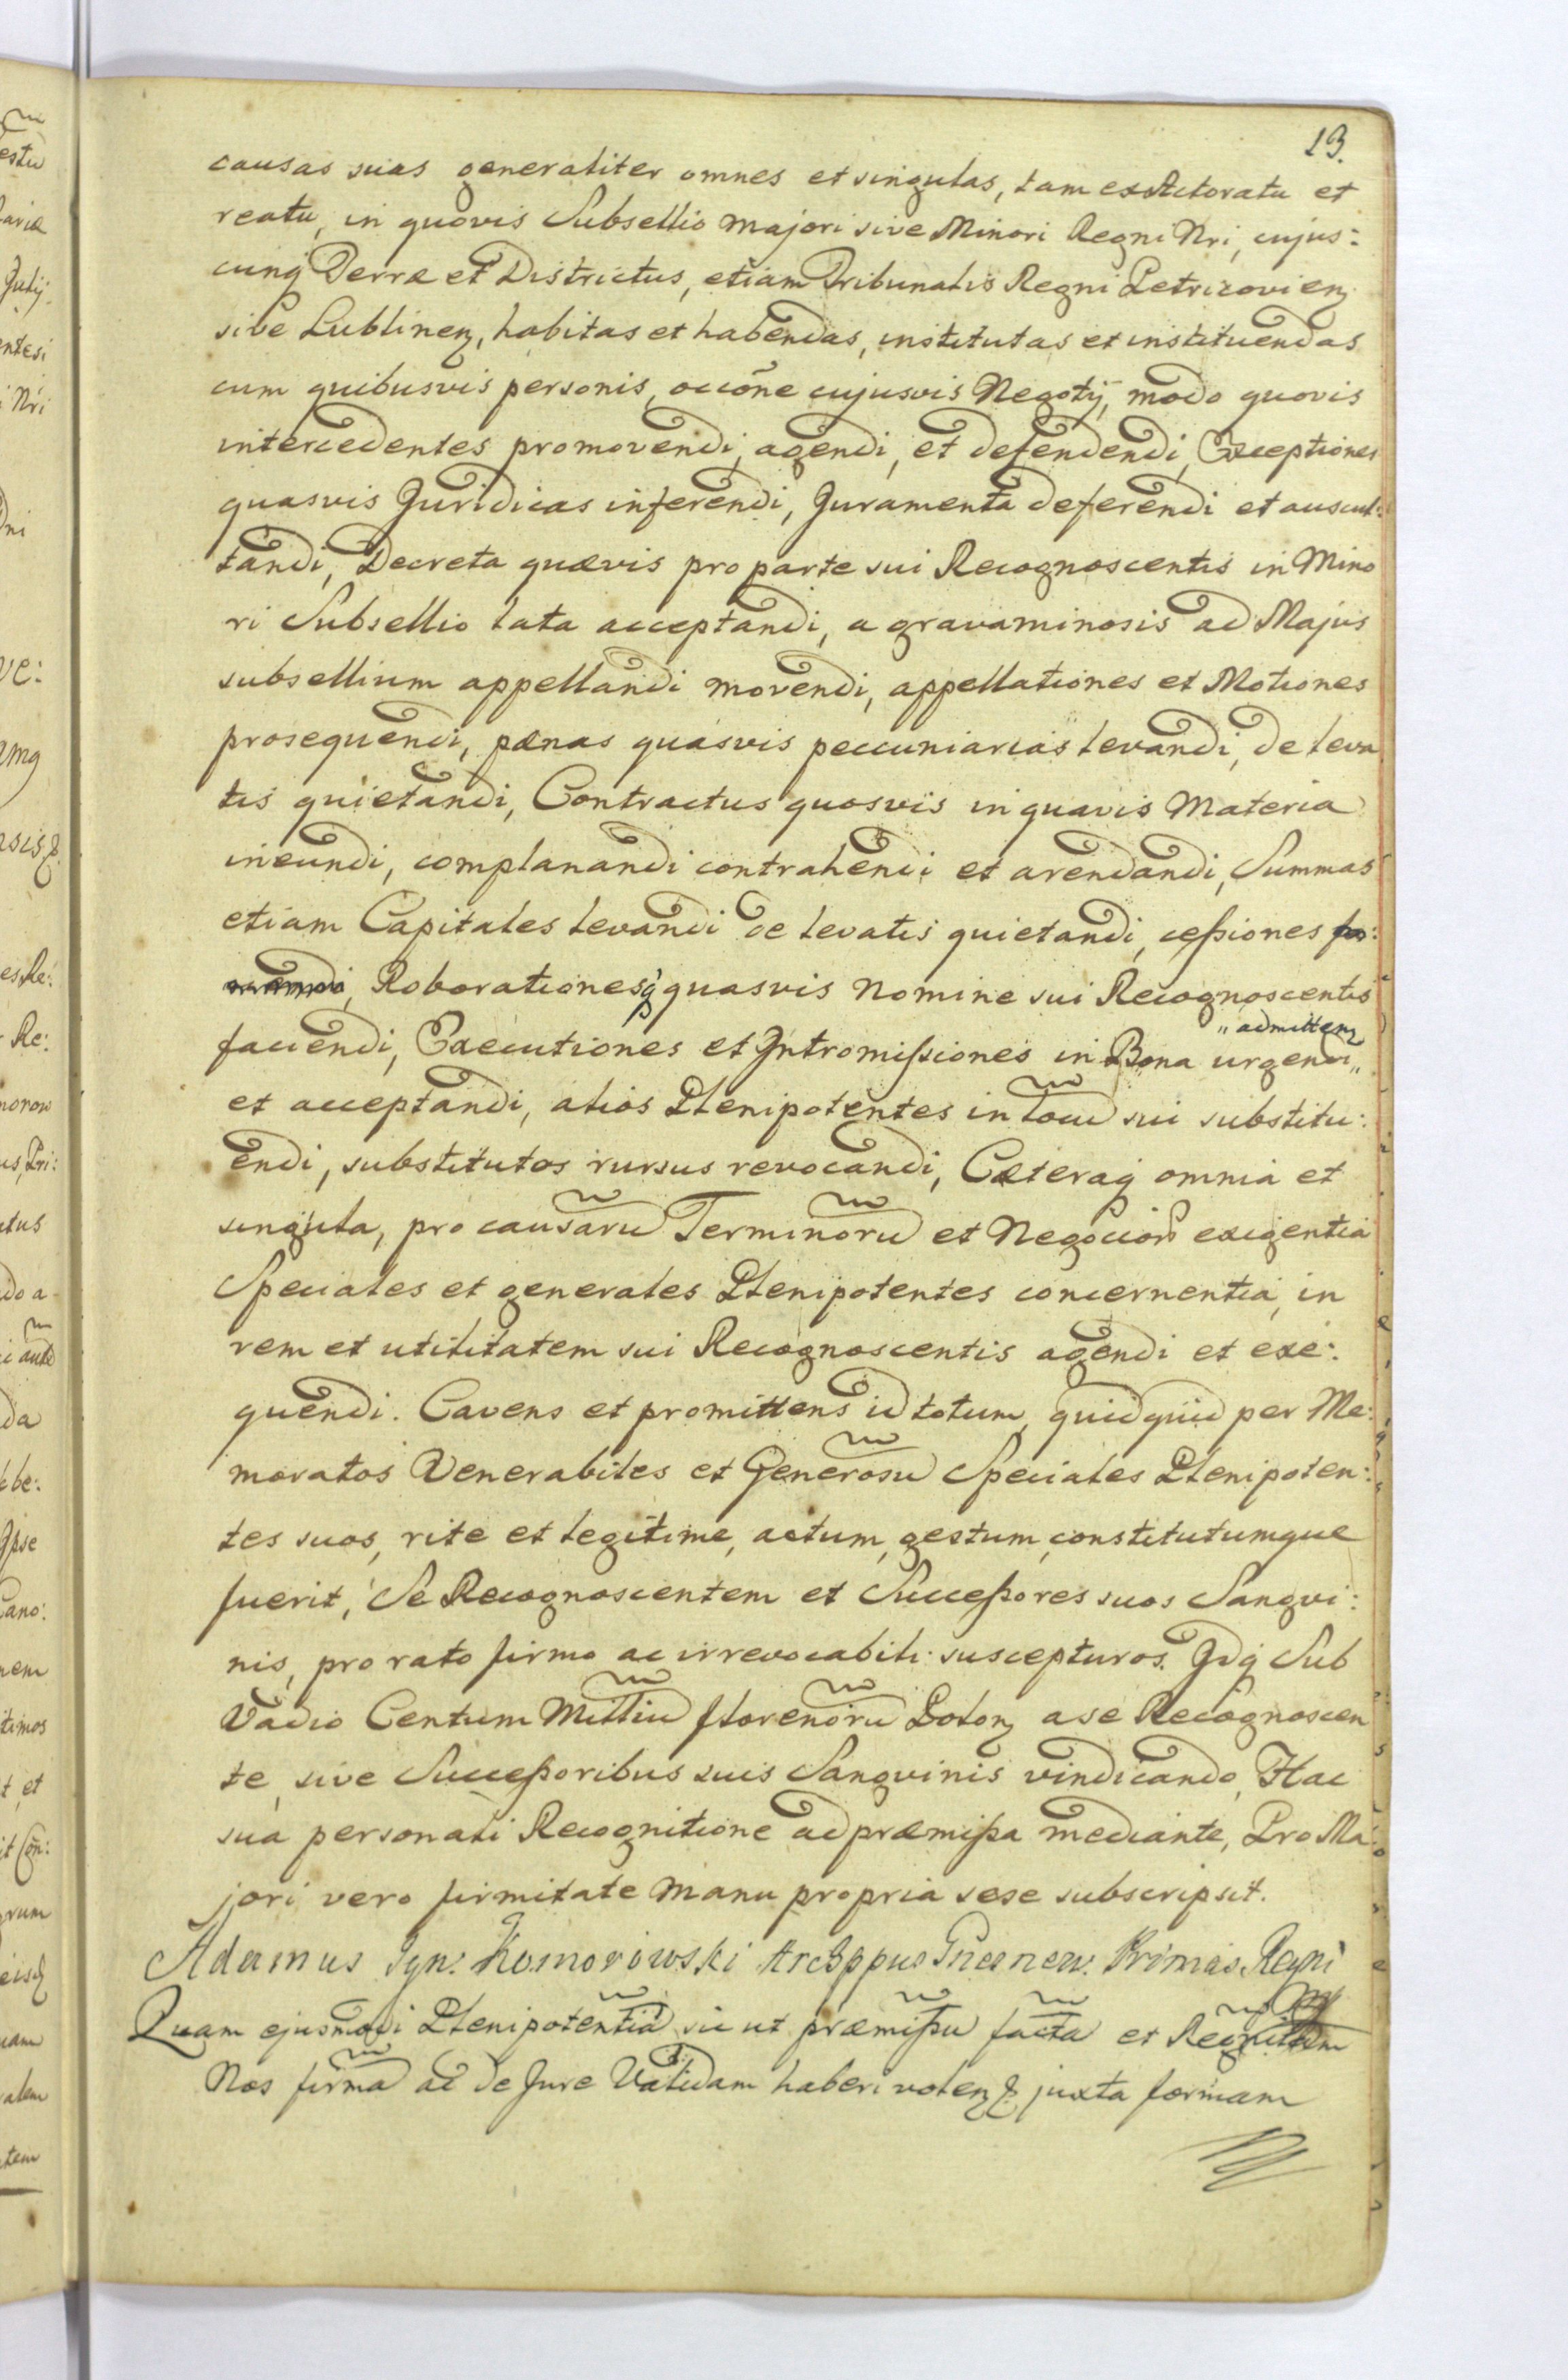 13.
causas suas generaliter omnes et singulas, tam ex Actoratu et
reatu, in quovis Subsellio majori sive Minori Regni Nri, cujus:
cunq Terræ et Districtus, etiam Tribunalis Regni Petricovien
sive Lublinen, habitas et habendas, institutas et instituendas
cum quibusvis personis, occone cujusvis Negotij, modo quovis
intercedentes promovendi, agendi, et defendendi, Exceptiones
quasvis Juridicas inferendi, Juramenta deferendi et auscul:
tandi, Decreta quævis pro parte sui Recognoscentis in Mino
ri Subsellio lata acceptandi, a gravaminosis ad Majus
subsellium appellandi movendi, appellationes et Motiones
prosequendi, pænas quasvis peccuniarias levandi, de leva
tis quietandi, Contractus quosvis in quavis Materia
ineundi, complanandi contrahendi et arendandi, Summas
etiam Capitales levandi de levatis quietandi, cessiones
Roborationesq quasvis Nomine sui Recognoscentis
faciendi, Executiones et Intromissiones in Bona urgendi,, ,,admitten
et acceptandi, alios Plenipotentes in locu sui substitu:
endi, substitutos rursus revocandi, Cæteraq omnia et
singula, pro causaru Terminoru et Negocior exigentia
Speciales et generales Plenipotentes concernentia, in
rem et utilitatem sui Recognoscentis agendi et exe:
quendi. Cavens et promittens id totum, quidquid per Me:
moratos Venerabiles et Generosu Speciales Plenipoten:
tes suos, rite et legitime, actum, gestum, constitutumque
fuerit, Se Recognoscentem et Successores suos Sangvi:
nis, pro rato firmo ac irrevocabili suscepturos. Idq Sub
Vadio Centum Milliu florenoru Polon a se Recognoscen
te, sive Successoribus suis Sangvinis vindicando, Hac
sua personali Recognitione ad præmissa mediante, Pro Ma:
jori vero firmitate Manu propria sese subscripsit.
Adamus Ign. Komorowski ArcEppus Gnesnen. Primas Regni
Quam ejusmodi Plenipotentia sic ut præmissu facta et
Nos firma ac de Jure Validam haberi volen juxta formam